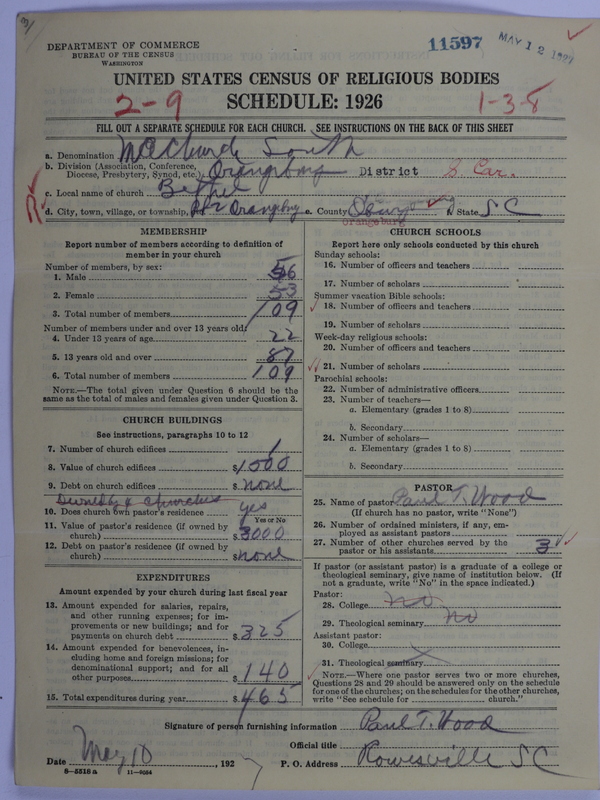 DEPARTMENT OF COMMERCE
BUREAU OF THE CENSUS
WASHINGTON
11597
MAY 12 1927
UNITED STATES CENSUS OF RELIGIOUS BODIES
2-9 SCHEDULE: 1926 1-3-8
FILL OUT A SEPARATE SCHEDULE FOR EACH CHURCH. SEE INSTRUCTIONS ON THE BACK OF THIS SHEET
a. Denomination M E Church South
b. Division (Association, Conference, Diocese, Presbytery, Synod, etc.) Orangeburg District S. Car.
c. Local name of church Bethel
d. City, town, village, or township, Orangeburg e. County Orangeburg f. State S C
MEMBERSHIP
Report number of members according to definition of
member in your church
Number of members, by sex:
1. Male 56
2. Female 53
3. Total number of members 109
Number of members under and over 13 years old:
4. Under 13 years of age 22
5. 13 years old and over 87
6. Total number of members 109
NOTE.—The total given under Question 6 should be
same as the total of males and females given under Question 3.
CHURCH BUILDINGS
See instructions, paragraphs 10 to 12
7. Number of church edifices 1
8. Value of church edifices $1000
9. Debt on church edifices $ none
Owned by 4 churches
10. Does church own pastor's residence yes
Yes or No
11. Value of pastor's residence (if owned by
church) $3000
12. Debt on pastor's residence (if owned by
church) $none
EXPENDITURES
Amount expended by your church during last fiscal year
13. Amount expended for salaries, repairs,
and other running expenses; for im-
provements or new buildings; and for
payments on church debt $325
14. Amount expended for benevolences, in-
cluding home and foreign missions; for
denominational support; and for all
other purposes $140
15. Total expenditures during year $465
CHURCH SCHOOLS
Report here only schools conducted by this church
Sunday schools:
16. Number of officers and teachers
17. Number of scholars
Summer vacation Bible schools:
18. Number of officers and teachers
19. Number of scholars
Week-day religious schools:
20. Number of officers and teachers
21. Number of scholars
Parochial schools:
22. Number of administrative officers
23. Number of teachers—
a. Elementary (grades 1 to 8)
b. Secondary
24. Number of scholars—
a. Elementary (grades 1 to 8)
b. Secondary
PASTOR
25. Name of pastor Paul T. Wood
(If church has no pastor, write "None")
26. Number of ordained ministers, if any, em-
ployed as assistant pastors
27. Number of other churches served by the
pastor or his assistants 3
If pastor (or assistant pastor) is a graduate of a college or
theological seminary, give name of institution below. (If
not a graduate, write "No" in the space indicated.)
Pastor:
28. College no
29. Theological seminary no
Assistant pastor:
30. College
31. Theological seminary
NOTE.—Where one pastor serves two or more churches,
Questions 28 and 29 should be answered only on the schedule
for one of the churches; on the schedules for the other churches,
write "See schedule for church."
Signature of person furnishing information Paul T. Wood
Official title
Date May 10, 1927 P. O. Address Rowesville S C
8-5318 a 11-9054